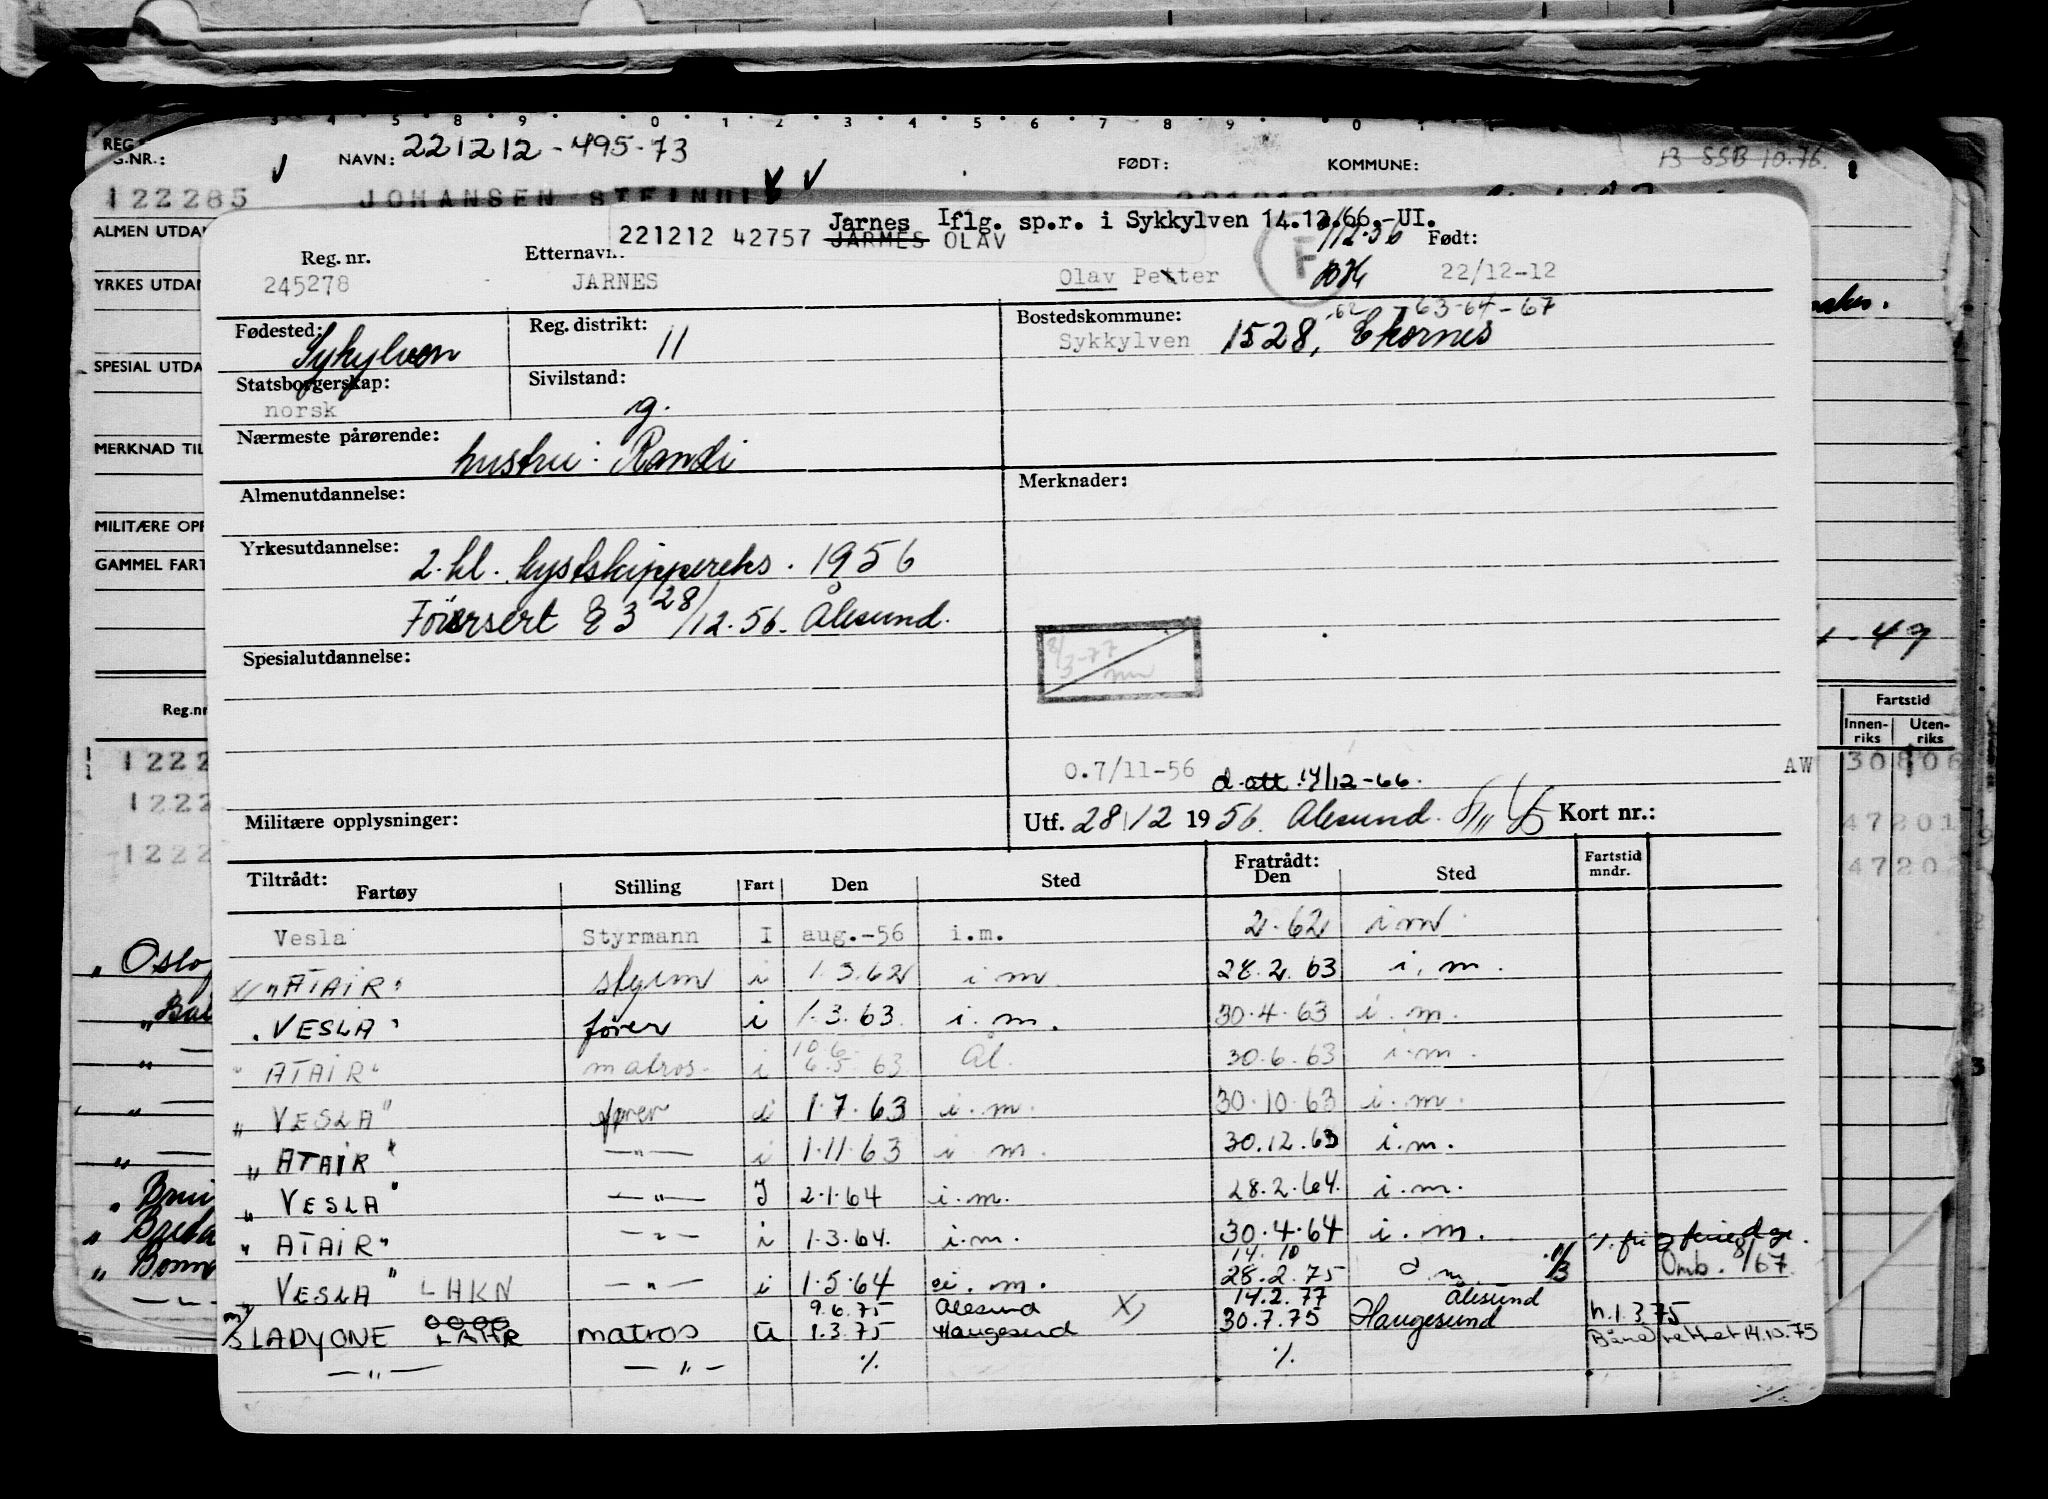 3 4 5 8 9 0 1 2 3 4 5 6 7 8 9 0
REG
G.NR.:
NAVN: 221212-495-73
FØDT:
KOMMUNE:
B SSB 10.76.
122285 JOHANSEN STEINDI
ALMEN UTDA
YRKES UTDA
SPESIAL UTDA
MERKNAD TIL
MILITÆRE OPP
GAMMEL FART
Jarnes Iflg. sp.r. i Sykkylven 14.12.66.-UI.
221212 42757 JARMES OLAV
Reg. nr. Etternavn: Født:
245278 JARNES Olav Petter F 22/12-12
62 - 63-64-67
Fødested: Sykylven
Reg. distrikt: 11
Bostedskommune:
Sykkylven 1528, Ekornes
Statsborgerskap: norsk
Sivilstand: g.
Nærmeste pårørende: hustru: Randi
Almenutdannelse:
Merknader:
Yrkesutdannelse: 2.kl. kystskippereks. 1956
Førersert E 3 28/12.56. Ålesund.
4-47
Spesialutdannelse:
8/3-77
Reg.nr
Fartstid
Innen-riks Uten-riks
1222 30806
1222
1222
0.7/11-56 d.att. 14/12-66. AW
Militære opplysninger:
Utf. 28/12 1956. Ålesund. Kort nr.:
47201
47202
Tiltrådt: Fratrådt: Fartstid mndr.
Fartøy Stilling Fart Den Sted Den Sted
Vesla Styrmann I aug.-56 i.m. 2.62 i m
" Oslo
"ATAIR" styrm i 1.3.62 i m 28.2.63 i.m.
"VESLA" fører i 1.3.63 i.m. 30.4.63 i.m.
10.6.
"ATAIR" matros i 6.5.63 Ål. 30.6.63 i.m.
"VESLA" fører i 1.7.63 i.m. 30.10.63 i.m.
"ATAIR" —"— i 1.11.63 i m. 30.12.63 i.m.
"VESLA" —"— I 2.1.64 i.m. 28.2.64. i.m.
"ATAIR" —"— i 1.3.64. i.m. 30.4.64 i.m.
14.10
"VESLA" LHKN —"— i 1.5.64 i.m. 28.2.75 1/3 Omb. 8/67
9.6.75 Ålesund X) 14.2.77 Ålesund h.1.3.75
LADYONE LAHR matros U 1.3.75 Haugesund 30.7.75 Haugesund rettet 14.10.75
—"— —"— % %